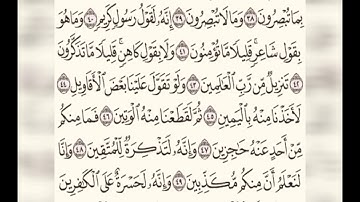 بِمَا تُبْصِرُونَ ٣٨ وَمَا لَا تُبْصِرُونَ ٣٩ إِنَّهُۥ لَقَوْلُ رَسُولٍ كَرِيمٍ ٤٠ وَمَا هُوَ
بِقَوْلِ شَاعِرٍ ۚ قَلِيلًا مَّا تُؤْمِنُونَ ٤١ وَلَا بِقَوْلِ كَاهِنٍ ۚ قَلِيلًا مَّا تَذَكَّرُونَ
٤٢ تَنزِيلٌ مِّن رَّبِّ ٱلْعَٰلَمِينَ ٤٣ وَلَوْ تَقَوَّلَ عَلَيْنَا بَعْضَ ٱلْأَقَاوِيلِ ٤٤
لَأَخَذْنَا مِنْهُ بِٱلْيَمِينِ ٤٥ ثُمَّ لَقَطَعْنَا مِنْهُ ٱلْوَتِينَ ٤٦ فَمَا مِنكُم
مِّنْ أَحَدٍ عَنْهُ حَٰجِزِينَ ٤٧ وَإِنَّهُۥ لَتَذْكِرَةٌ لِّلْمُتَّقِينَ ٤٨ وَإِنَّا
لَنَعْلَمُ أَنَّ مِنكُم مُّكَذِّبِينَ ٤٩ وَإِنَّهُۥ لَحَسْرَةٌ عَلَى ٱلْكَٰفِرِينَ